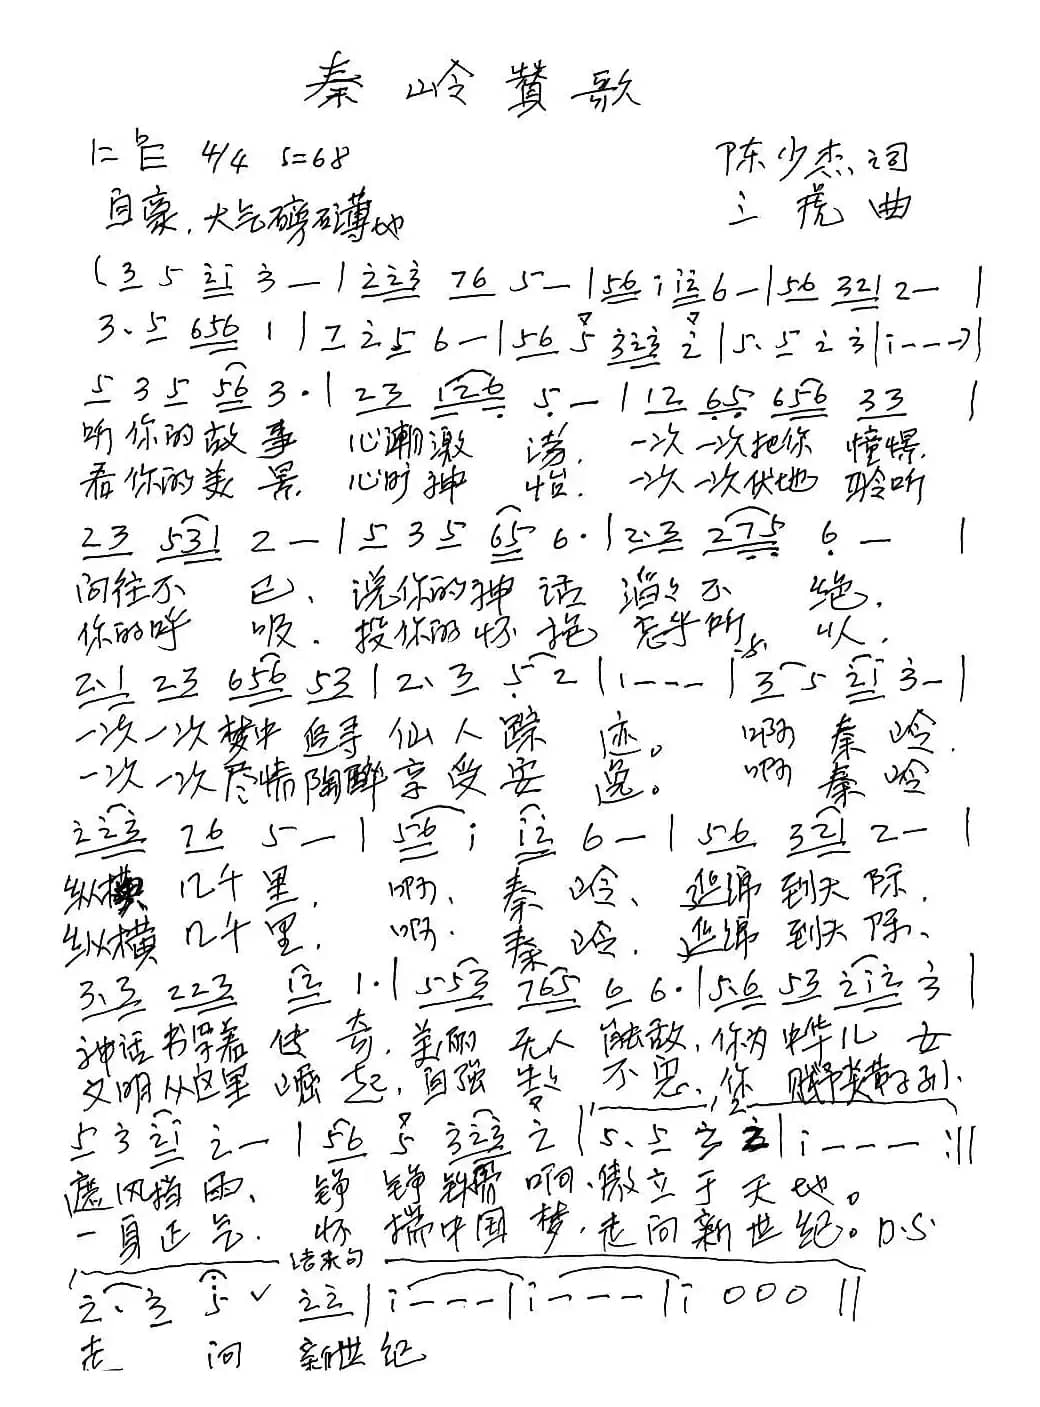 秦岭赞歌
1=♭E 4/4 5=68 陈少杰词
自豪、大气磅礴地 三虎曲
(3 5 2̇1̇ 3̇ — | 2̇2̇3̇ 76 5 — | 56 1̇ 1̇2̇ 6 — | 56 321 2 — |
3. 5 656 1 | 7 2̇ 5 6 — | 56 5 3̇2̇3̇ 2̇ | 5. 5 2̇ 3̇ | 1̇ — — —) |
5 3 5 56 3 · | 23 126 5 — | 12 65 656 33 |
听你的故事 心潮激荡. 一次一次把你 憧憬.
看你的美景. 心旷神怡. 一次一次伏地 聆听
23 531 2 — | 5 3 5 65 6 · | 2.3 275 6 — |
向往不已、说你的神话 滔々不绝.
你的呼吸. 投你的怀抱 怎乎所以.
2.1 23 656 53 | 2. 3 5 2 | 1 — — — | 3 5 2̇1̇ 3̇ — |
一次一次梦中追寻 仙人踪迹。 啊 秦岭.
一次一次尽情陶醉 享受安逸。 啊 秦岭
2̇2̇3̇ 76 5 — | 56 1̇ 1̇2̇ 6 — | 56 321 2 — |
纵横几千里. 啊、秦岭、延绵到天际.
纵横几千里. 啊. 秦岭. 延绵到天际、
3.3 223 12 1 · | 553 765 6 6 · | 5.6 53 2̇1̇2̇ 3̇ |
神话书写着传奇. 美丽无人能敌, 你为中华儿女
文明从这里崛起, 自强生生不息、你赋予炎黄子孙、
5 3̇ 2̇1̇ 2̇ — | 56 5 3̇2̇3̇ 2̇ | 5. 5 2̇ 2̇ | 1̇ — — — :||
遮风挡雨、铮铮铁骨啊、傲立于天地。
一身正气. 怀揣中国梦. 走向新世纪。D.S.
结束句
2̇. 3̇ 5̇ ∨ 2̇2̇ | 1̇ — — — | 1̇ — — — | 1̇ 0 0 0 ||
走向 新世纪